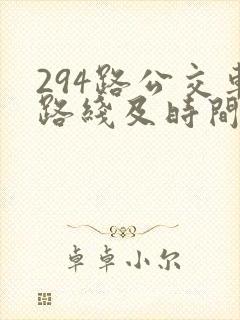 294路公交車
路綫及時間
卓卓小尔